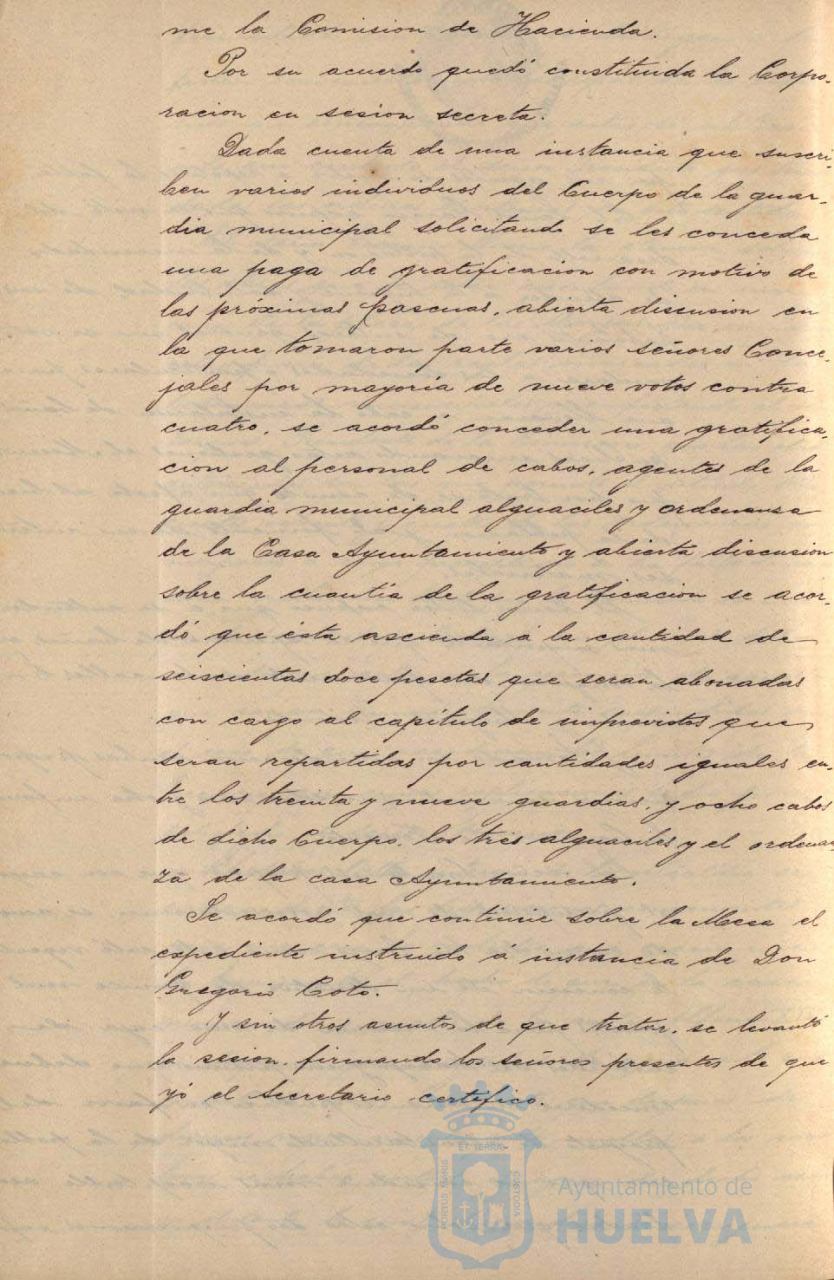 me la Comision de Hacienda.
Por su acuerdo quedó constituida la Corpo-
racion en sesion secreta.
Dada cuenta de una instancia que suscri-
ben varios individuos del Cuerpo de la guar-
dia municipal solicitando se les conceda
una paga de gratificacion con motivo de
las próximas pascuas, abierta discusion en
la que tomaron parte varios señores Conce-
jales por mayoría de nueve votos contra
cuatro, se acordó conceder una gratifica-
cion al personal de cabos, agentes de la
guardia municipal alguaciles y ordenansa
de la Casa Ayuntamiento y abierta discusion
sobre la cuantía de la gratificacion se acor-
dó que ésta ascienda á la cantidad de
seiscientas doce pesetas que seran abonadas
con cargo al capítulo de imprevistos que
seran repartidas por cantidades iguales en-
tre los treinta y nueve guardias, y ocho cabos
de dicho Cuerpo, los tres alguaciles y el ordenan-
za de la casa Ayuntamiento.
Se acordó que continúe sobre la Mesa el
expediente instruido á instancia de Don
Gregorio Coto.
Y sin otros asuntos de que tratar, se levantó
la sesion, firmando los señores presentes de que
yó el Secretario certifico.
ET TERRA
PORTUS MARIS
CUSTODIA
Ayuntamiento de
HUELVA